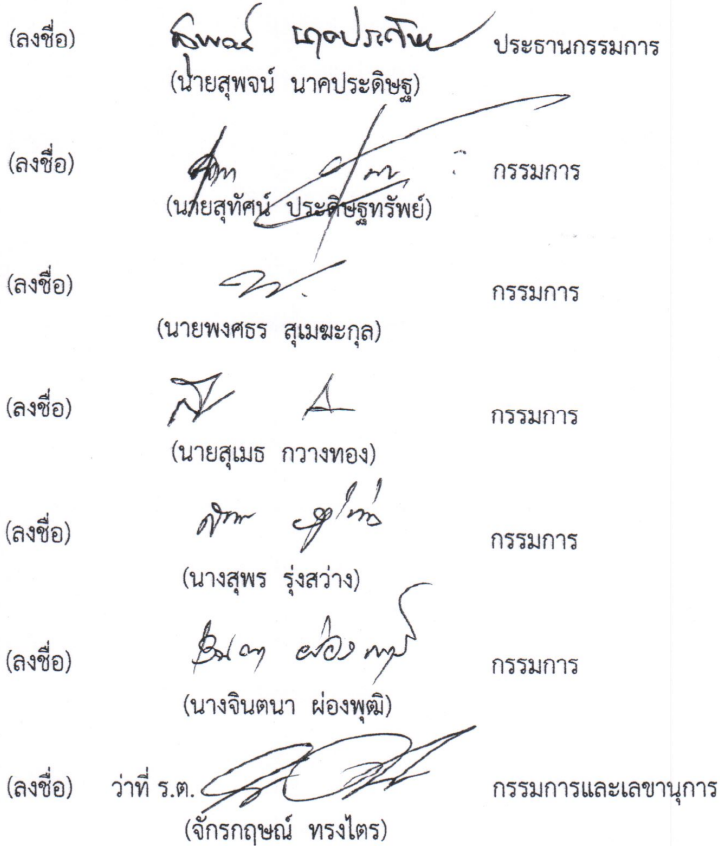 (ลงชื่อ) สุพจน์ นาคประดิษฐ ประธานกรรมการ
(นายสุพจน์ นาคประดิษฐ)
(ลงชื่อ) กรรมการ
(นายสุทัศน์ ประดิษฐทรัพย์)
(ลงชื่อ) กรรมการ
(นายพงศธร สุเมฆะกุล)
(ลงชื่อ) กรรมการ
(นายสุเมธ กวางทอง)
(ลงชื่อ) กรรมการ
(นางสุพร รุ่งสว่าง)
(ลงชื่อ) กรรมการ
(นางจินตนา ผ่องพุฒิ)
(ลงชื่อ) ว่าที่ ร.ต. กรรมการและเลขานุการ
(จักรกฤษณ์ ทรงไตร)